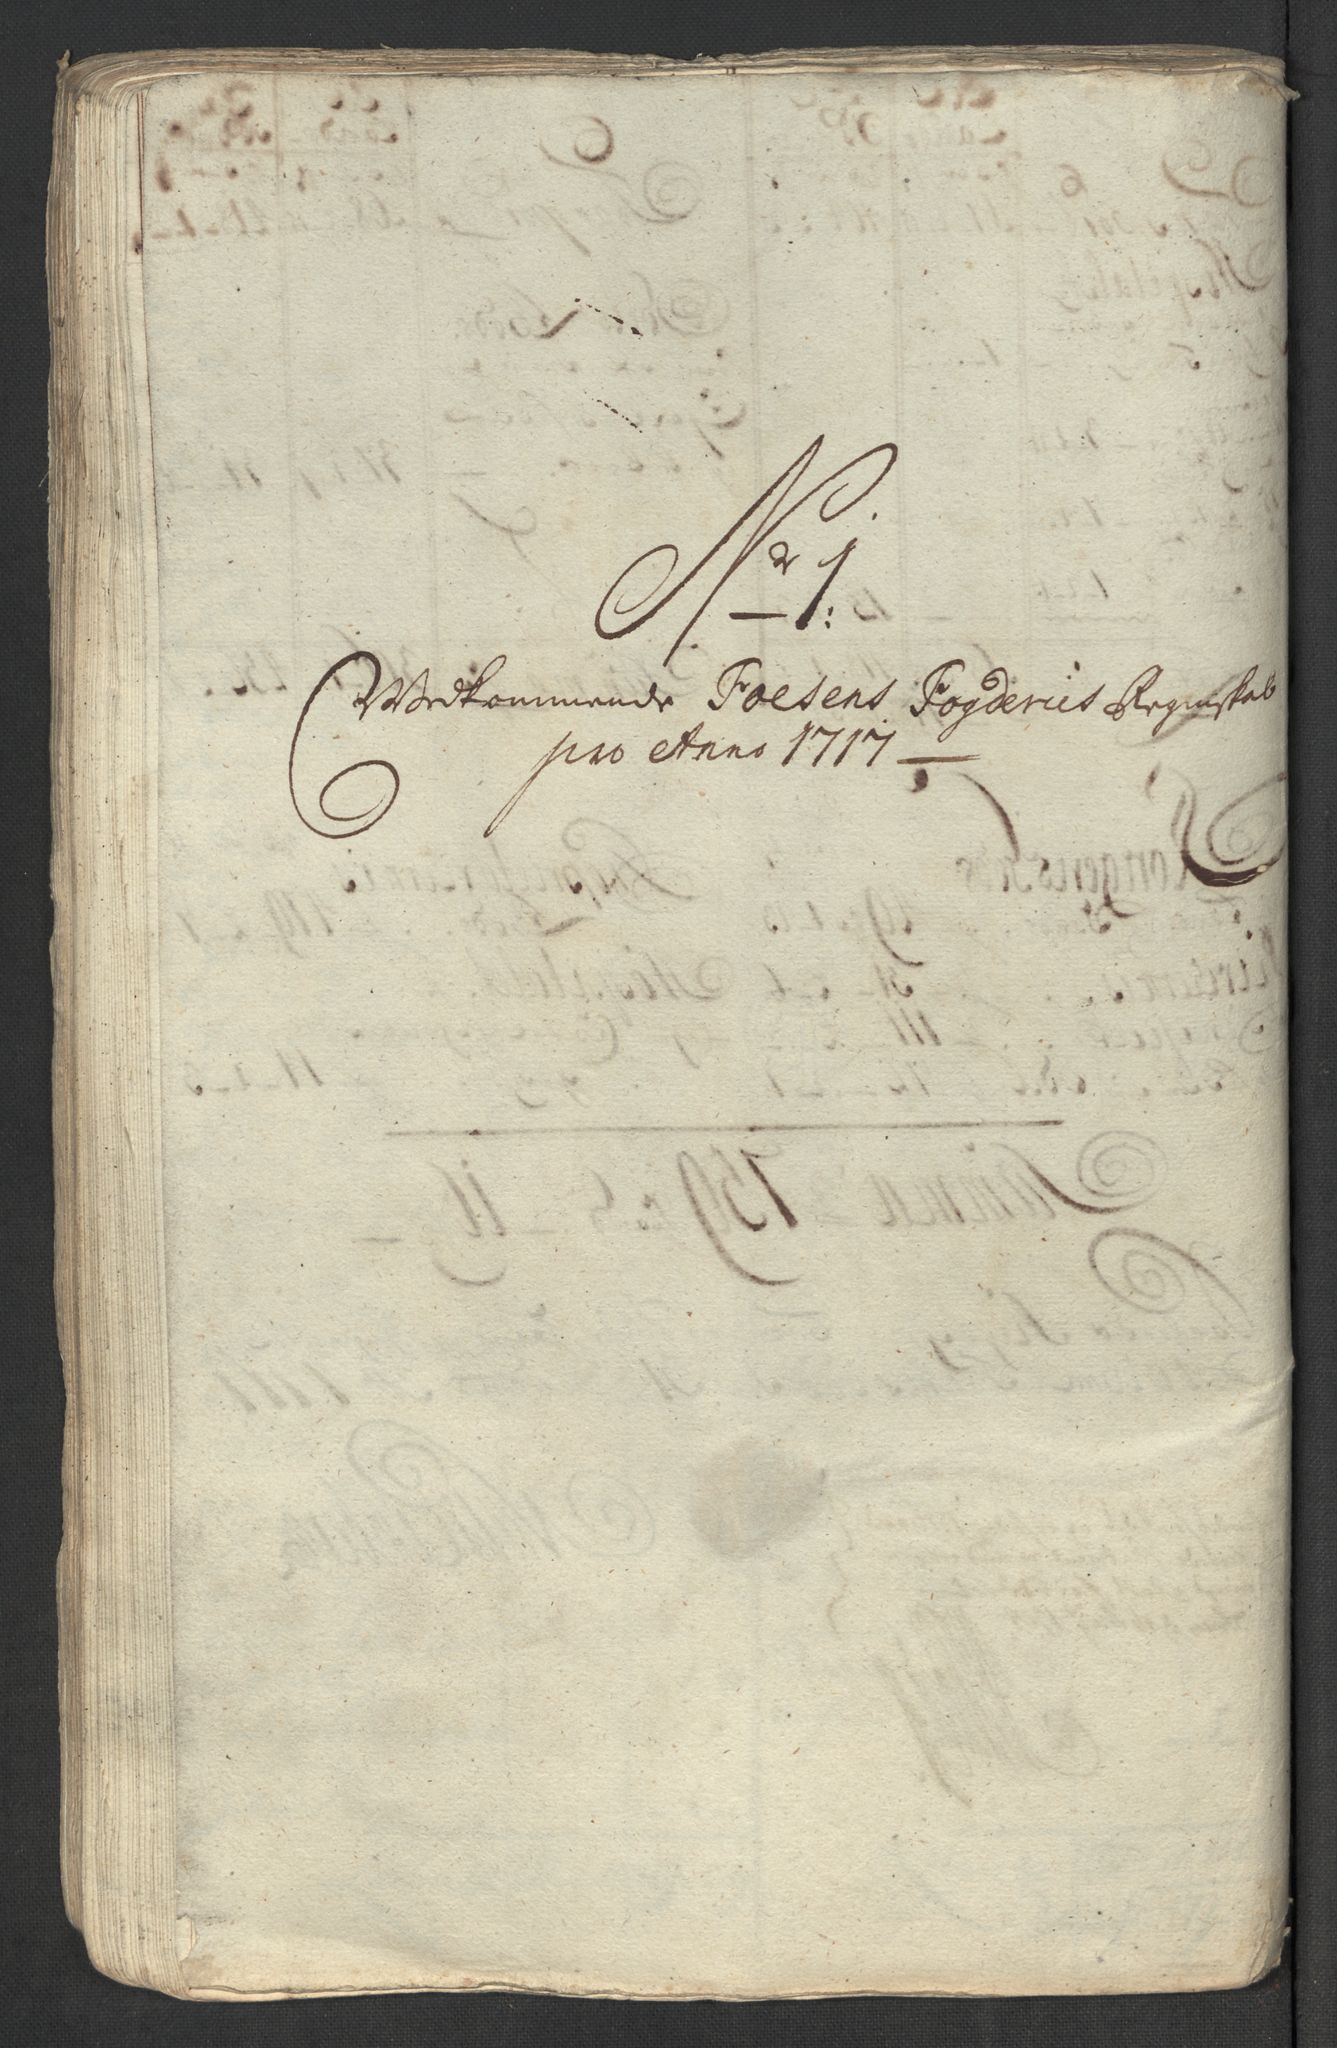 Nr 1:
Vedkommende Foesens Fogderies Regenskab
pro Anno 1717